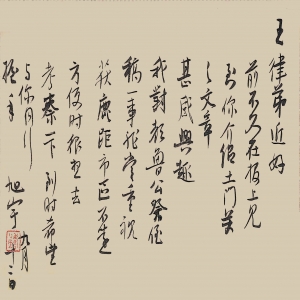 王律弟近好
前不久在报上见
到你介绍土门关
之文章
甚感兴趣
我对颜鲁公祭侄
稿一事非常重视
获鹿距市区不远
方便时很想去
考察一下到时希望
与你同行
握手
旭宇
九月
十二日